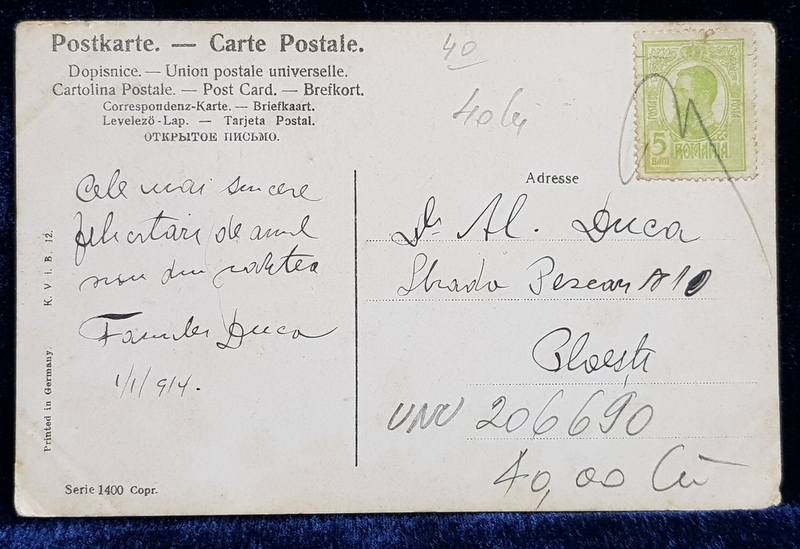 Postkarte. — Carte Postale.
Dopisnice. — Union postale universelle.
Cartolina Postale. — Post Card. — Brefkort.
Correspondenz-Karte. — Briefkaart.
Levelező-Lap. — Tarjeta Postal.
ОТКРЫТОЕ ПИСЬМО.
40
40 lei
5
Bani
ROMANIA
POSTA
POSTA
Cele mai sincere
felicitări de anul
nou din partea
Familiei Duca
1/1/914.
Adresse
Dr Al. Duca
Strada Pescari 10
Ploești
UNU 206690
40,00
K. V. i. B. 12.
Printed in Germany.
Serie 1400 Copr.